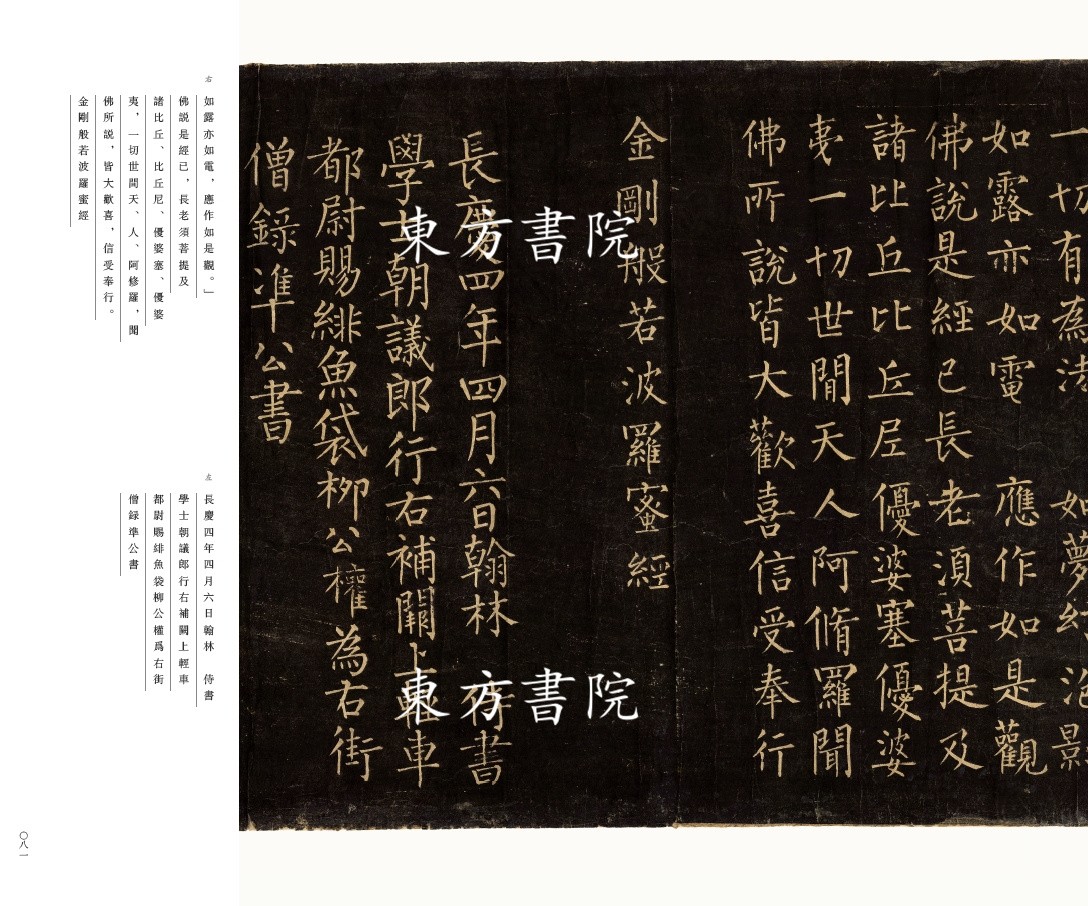 一切有為法如夢幻泡影
如露亦如電應作如是觀
佛說是經已長老須菩提及
諸比丘比丘尼優婆塞優婆
夷一切世間天人阿脩羅聞
佛所說皆大歡喜信受奉行
金剛般若波羅蜜經
長慶四年四月六日翰林侍書
學士朝議郎行右補闕上輕車
都尉賜緋魚袋柳公權為右街
僧錄準公書
東方書院
東方書院
右
如露亦如電，應作如是觀。」
佛說是經已，長老須菩提及
諸比丘、比丘尼、優婆塞、優婆
夷，一切世間天、人、阿修羅，聞
佛所說，皆大歡喜，信受奉行。
金剛般若波羅蜜經
左
長慶四年四月六日翰林 侍書
學士朝議郎行右補闕上輕車
都尉賜緋魚袋柳公權爲右街
僧録準公書
〇八一